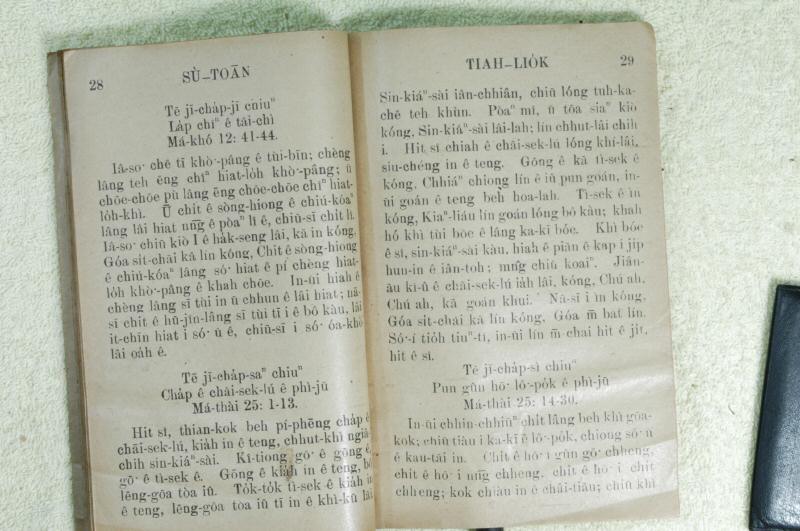 28
SÙ-TOĀN
Tē jī-cha̍p-jī chiuⁿ
La̍p chîⁿ ê tāi-chì
Má-khó 12: 41-44.
Iâ-so· chē tī khò·-pâng ê tùi-bīn; chèng
lâng teh ēng chîⁿ hiat-lo̍h khò·-pâng; ū
chōe-chōe pù lâng ēng chōe-chōe chîⁿ hiat-
lo̍h-khì. Ū chi̍t ê sòng-hiong ê chiú-kóaⁿ
lâng lâi hiat nn̄g ê pòaⁿ lî ê, chiū-sī chi̍t lî.
Iâ-so· chiū kiò I ê ha̍k-seng lâi, kā in kóng,
Góa si̍t-chāi kā lín kóng, Chit ê sòng-hiong
ê chiú-kóaⁿ lâng só· hiat ê pí chèng hiat-
lo̍h khò·-pâng ê khah chōe. In-ūi hiah ê
chèng lâng sī tùi in ū chhun ê lâi hiat; nā-
sī chit ê hū-jîn-lâng sī tùi tī i ê bô kàu, lâi
it-chīn hiat i só· ū ê, chiū-sī i só· óa-khò
lâi oa̍h ê.
Tē jī-cha̍p-saⁿ chiuⁿ
Cha̍p ê châi-sek-lú ê phì-jū
Má-thài 25: 1-13.
Hit sî, thian-kok beh pí-phēng cha̍p ê
chāi-sek-lú, kia̍h in ê teng, chhut-khì ngiâ-
chih sin-kiáⁿ-sài. Kî-tiong gō· ê gōng ê
gō· ê tì-sek ê. Gōng ê kia̍h in ê teng, bô
lēng-gōa tòa iû. To̍k-to̍k tì-sek ê kia̍h in
ê teng, lēng-gōa tòa iû tī in ê khì-kū lāi
TIAH-LIO̍K
29
Sin-kiáⁿ-sài iân-chhiân, chiū lóng tuh-ka-
chē teh khùn. Pòaⁿ mî, ū tōa siaⁿ kiò
kóng, Sin-kiáⁿ-sài lâi-lah; lín chhut-lâi chih
i. Hit sî chiah ê châi-sek-lú lóng khí-lâi,
siu-chéng in ê teng. Gōng ê kà tì-sek ê
kóng, Chhiáⁿ chiong lín ê iû pun goán, in-
ūi goán ê teng beh hoa-lah. Tì-sek ê ìn
kóng, Kiaⁿ-liáu lín goán lóng bô kàu; khah
hó khì tùi bōe ê lâng ka-kī bóe. Khì bóe
ê sî, sin-kiáⁿ-sài kàu, hiah ê piān ê kap i ji̍p
hun-in ê iân-toh; mn̂g chiū koaiⁿ. Jiân-
āu kî-û ê châi-sek-lú ia̍h lâi, kóng, Chú ah,
Chú ah, kā goán khui. Nā-sī i ìn kóng,
Góa si̍t-chāi kā lín kóng, Góa m̄ bat lín.
Só·-í tio̍h tiuⁿ-tî, in-ūi lín m̄ chai hit ê ji̍t,
hit ê sî.
Tē jī-cha̍p-sì chiuⁿ
Pun gûn hō· lô·-po̍k ê phì-jū
Má-thài 25: 14-30.
In-ūi chhin-chhiūⁿ chi̍t lâng beh khì gōa-
kok; chiū tiàu i ka-kī ê lô·-po̍k, chiong só· ū
ê kau-tāi in. Chi̍t ê hō· i gûn gō· chheng,
chi̍t ê hō· i nn̄g chheng, chi̍t ê hō· i chi̍t
chheng; kok chiàu in ê châi-tiāu; chiū khì